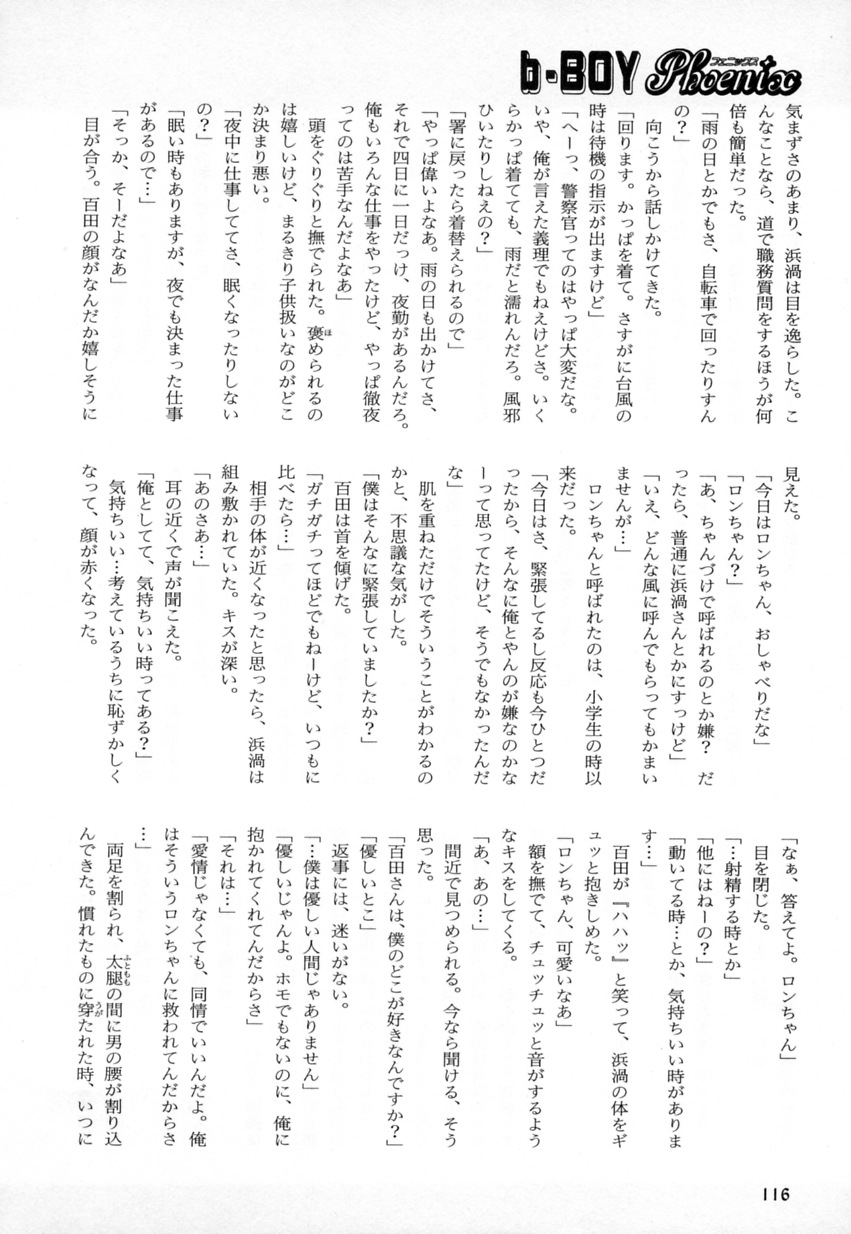 b-BOY Phoenix
フェニックス
気まずさのあまり、浜渦は目を逸らした。こ
んなことなら、道で職務質問をするほうが何
倍も簡単だった。
「雨の日とかでもさ、自転車で回ったりすん
の？」
向こうから話しかけてきた。
「回ります。かっぱを着て。さすがに台風の
時は待機の指示が出ますけど」
「へーっ、警察官ってのはやっぱ大変だな。
いや、俺が言えた義理でもねえけどさ。いく
らかっぱ着てても、雨だと濡れんだろ。風邪
ひいたりしねえの？」
「署に戻ったら着替えられるので」
「やっぱ偉いよなあ。雨の日も出かけてさ、
それで四日に一日だっけ、夜勤があるんだろ。
俺もいろんな仕事をやったけど、やっぱ徹夜
ってのは苦手なんだよなあ」
頭をぐりぐりと撫でられた。褒められるの
は嬉しいけど、まるきり子供扱いなのがどこ
か決まり悪い。
「夜中に仕事しててさ、眠くなったりしない
の？」
「眠い時もありますが、夜でも決まった仕事
があるので…」
「そっか、そーだよなあ」
目が合う。百田の顔がなんだか嬉しそうに
見えた。
「今日はロンちゃん、おしゃべりだな」
「ロンちゃん？」
「あ、ちゃんづけで呼ばれるのとか嫌？　だ
ったら、普通に浜渦さんとかにすっけど」
「いえ、どんな風に呼んでもらってもかまい
ませんが…」
ロンちゃんと呼ばれたのは、小学生の時以
来だった。
「今日はさ、緊張してるし反応も今ひとつだ
ったから、そんなに俺とやんのが嫌なのかな
ーって思ってたけど、そうでもなかったんだ
な」
肌を重ねただけでそういうことがわかるの
かと、不思議な気がした。
「僕はそんなに緊張していましたか？」
百田は首を傾げた。
「ガチガチってほどでもねーけど、いつもに
比べたら…」
相手の体が近くなったと思ったら、浜渦は
組み敷かれていた。キスが深い。
「あのさあ…」
耳の近くで声が聞こえた。
「俺としてて、気持ちいい時ってある？」
気持ちいい…考えているうちに恥ずかしく
なって、顔が赤くなった。
「なぁ、答えてよ。ロンちゃん」
目を閉じた。
「…射精する時とか」
「他にはねーの？」
「動いてる時…とか、気持ちいい時がありま
す…」
百田が『ハハッ』と笑って、浜渦の体をギ
ュッと抱きしめた。
「ロンちゃん、可愛いなあ」
額を撫でて、チュッチュッと音がするよう
なキスをしてくる。
「あ、あの…」
間近で見つめられる。今なら聞ける、そう
思った。
「百田さんは、僕のどこが好きなんですか？」
「優しいとこ」
返事には、迷いがない。
「…僕は優しい人間じゃありません」
「優しいじゃんよ。ホモでもないのに、俺に
抱かれてくれてんだからさ」
「それは…」
「愛情じゃなくても、同情でいいんだよ。俺
はそういうロンちゃんに救われてんだからさ
…」
両足を割られ、太腿の間に男の腰が割り込
んできた。慣れたものに穿たれた時、いつに
116